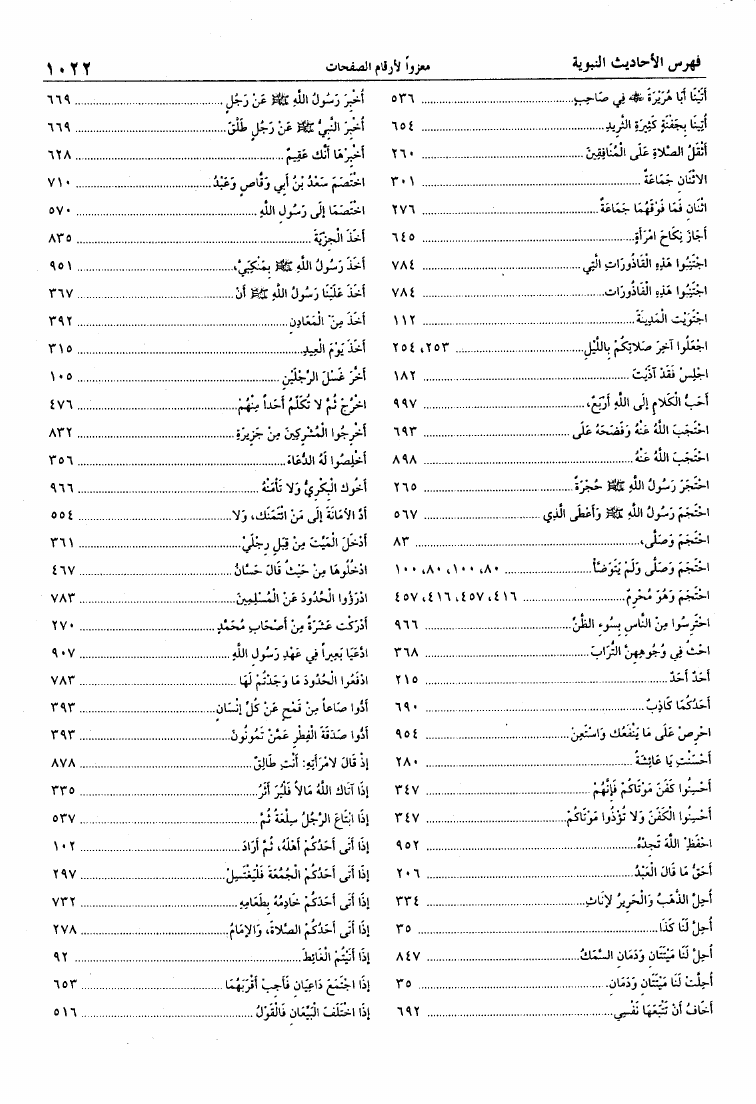 فهرس الأحاديث النبوية معزواً لأرقام الصفحات ١٠٢٢
أَتَيْنَا أَبَا هُرَيْرَةَ ﷺ فِي صَاحِبِ ٥٣٦
أُتِينَا بِجَفْنَةٍ كَثِيرَةِ الثَّرِيدِ ٦٥٤
أَثْقَلُ الصَّلَاةِ عَلَى الْمُنَافِقِينَ ٢٦٠
الاثْنَانِ جَمَاعَةٌ ٣٠١
اثْنَانِ فَمَا فَوْقَهُمَا جَمَاعَةٌ ٢٧٦
أَجَازَ نِكَاحَ امْرَأَةٍ ٦٤٥
اجْتَنِبُوا هَذِهِ الْقَاذُورَاتِ الَّتِي ٧٨٤
اجْتَنِبُوا هَذِهِ الْقَاذُورَاتِ ٧٨٤
اجْتَوَيْتُ الْمَدِينَةَ ١١٢
اجْعَلُوا آخِرَ صَلَاتِكُمْ بِاللَّيْلِ ٢٥٣، ٢٥٤
اجْلِسْ فَقَدْ آذَيْتَ ١٨٢
أَحَبُّ الْكَلَامِ إِلَى اللَّهِ أَرْبَعٌ، ٩٩٧
احْتَجَبَ اللَّهُ عَنْهُ وَفَضَحَهُ عَلَى ٦٩٣
احْتَجَبَ اللَّهُ عَنْهُ ٨٩٨
احْتَجَرَ رَسُولُ اللَّهِ ﷺ حُجْرَةً ٢٦٥
احْتَجَمَ رَسُولُ اللَّهِ ﷺ وَأَعْطَى الَّذِي ٥٦٧
احْتَجَمَ وَصَلَّى، ٨٣
احْتَجَمَ وَصَلَّى وَلَمْ يَتَوَضَّأْ ٨٠، ١٠٠، ٨٠، ١٠٠
احْتَجَمَ وَهُوَ مُحْرِمٌ ٤١٦، ٤٥٧، ٤١٦، ٤٥٧
احْتَرِسُوا مِنَ النَّاسِ بِسُوءِ الظَّنِّ ٩٦٦
احْثُ فِي وُجُوهِهِنَّ التُّرَابَ ٣٦٨
أَحَدٌ أَحَدٌ ٢١٥
أَحَدُكُمَا كَاذِبٌ ٦٩٠
احْرِصْ عَلَى مَا يَنْفَعُكَ وَاسْتَعِنْ ٩٥٤
أَحْسَنْتِ يَا عَائِشَةُ ٢٨٠
أَحْسِنُوا كَفَنَ مَوْتَاكُمْ فَإِنَّهُمْ ٣٤٧
أَحْسِنُوا الْكَفَنَ وَلَا تُؤْذُوا مَوْتَاكُمْ ٣٤٧
احْفَظِ اللَّهَ تَجِدْهُ ٩٥٢
أَحَقُّ مَا قَالَ الْعَبْدُ ٢٠٦
أُحِلَّ الذَّهَبُ وَالْحَرِيرُ لِإِنَاثِ ٣٣٤
أُحِلَّ لَنَا كَذَا ٣٥
أُحِلَّ لَنَا مَيْتَتَانِ وَدَمَانِ السَّمَكُ ٨٤٧
أُحِلَّتْ لَنَا مَيْتَتَانِ وَدَمَانِ ٣٥
أَخَافُ أَنْ تَتْبَعَهَا نَفْسِي ٦٩٢
أَخْبَرَ رَسُولُ اللَّهِ ﷺ عَنْ رَجُلٍ ٦٦٩
أَخْبَرَ النَّبِيُّ ﷺ عَنْ رَجُلٍ طَلَّقَ ٦٦٩
أَخْبِرْهَا أَنَّكَ عَقِيمٌ ٦٢٨
اخْتَصَمَ سَعْدُ بْنُ أَبِي وَقَّاصٍ وَعَبْدُ ٧١٠
اخْتَصَمَا إِلَى رَسُولِ اللَّهِ ٥٧٠
أَخَذَ الْجِزْيَةَ ٨٣٥
أَخَذَ رَسُولُ اللَّهِ ﷺ بِمَنْكِبَيَّ، ٩٥١
أَخَذَ عَلَيْنَا رَسُولُ اللَّهِ ﷺ أَنْ ٣٦٧
أَخَذَ مِنَ الْمَعَادِنِ ٣٩٢
أَخَذَ يَوْمَ الْعِيدِ ٣١٥
أَخَّرَ غَسْلَ الرِّجْلَيْنِ ١٠٥
اخْرُجْ ثُمَّ لَا تُكَلِّمْ أَحَداً مِنْهُمْ ٤٧٦
أَخْرِجُوا الْمُشْرِكِينَ مِنْ جَزِيرَةِ ٨٣٢
أَخْلِصُوا لَهُ الدُّعَاءَ ٣٥٦
أَخُوكَ الْبَكْرِيُّ وَلَا تَأْمَنْهُ ٩٦٦
أَدِّ الْأَمَانَةَ إِلَى مَنْ ائْتَمَنَكَ، وَلَا ٥٥٤
أَدْخَلَ الْمَيِّتَ مِنْ قِبَلِ رِجْلَيْ ٣٦١
ادْخُلُوهَا مِنْ حَيْثُ قَالَ حَسَّانُ ٤٦٧
ادْرَؤُوا الْحُدُودَ عَنْ الْمُسْلِمِينَ ٧٨٣
أَدْرَكْت عَشَرَةً مِنْ أَصْحَابِ مُحَمَّدٍ ٢٧٠
ادَّعَيَا بَعِيراً فِي عَهْدِ رَسُولِ اللَّهِ ٩٠٧
ادْفَعُوا الْحُدُودَ مَا وَجَدْتُمْ لَهَا ٧٨٣
أَدُّوا صَاعاً مِنْ قَمْحٍ عَنْ كُلِّ إِنْسَانٍ ٣٩٣
أَدُّوا صَدَقَةَ الْفِطْرِ عَمَّنْ تَمُونُونَ ٣٩٣
إِذْ قَالَ لِامْرَأَتِهِ: أَنْتِ طَالِقٌ ٨٧٨
إِذَا آتَاكَ اللَّهُ مَالاً فَلْيُرَ أَثَرُ ٣٣٥
إِذَا ابْتَاعَ الرَّجُلُ سِلْعَةً ثُمَّ ٥٣٧
إِذَا أَتَى أَحَدُكُمْ أَهْلَهُ، ثُمَّ أَرَادَ ١٠٢
إِذَا أَتَى أَحَدُكُمْ الْجُمُعَةَ فَلْيَغْتَسِلْ ٢٩٧
إِذَا أَتَى أَحَدَكُمْ خَادِمُهُ بِطَعَامِهِ ٧٣٢
إِذَا أَتَى أَحَدُكُمْ الصَّلَاةَ، وَالْإِمَامُ ٢٧٨
إِذَا أَتَيْتُمْ الْغَائِطَ ٩٢
إِذَا اجْتَمَعَ دَاعِيَانِ فَأَجِبْ أَقْرَبَهُمَا ٦٥٣
إِذَا اخْتَلَفَ الْبَيِّعَانِ فَالْقَوْلُ ٥١٦